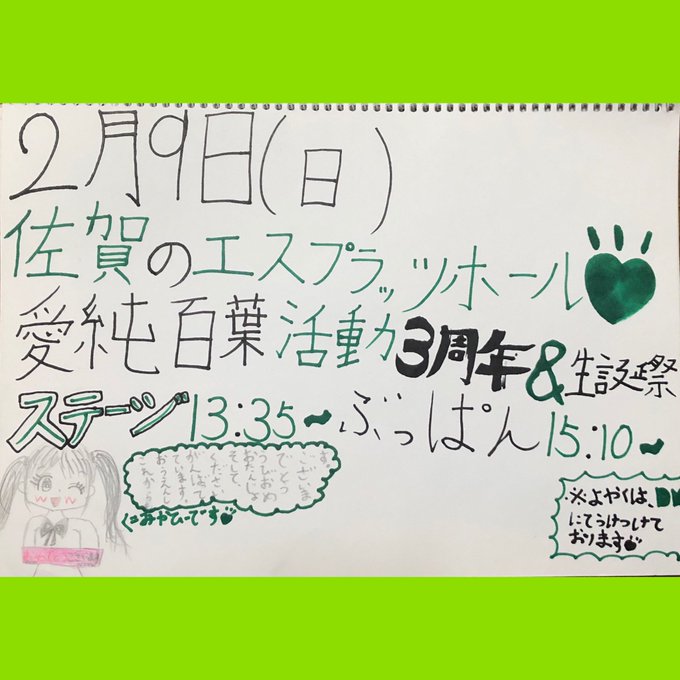 2月9日(日)
佐賀のエスプラッツホール
愛純百葉活動3周年&生誕祭
ステージ13:35～ぶっぱん15:10～
これから
おうえんし
ています。
がんばって
ください
そして、
おたんじょ
うびおめ
でとう
ございま
す。
※よやくは、DM
にてうけつけて
おります